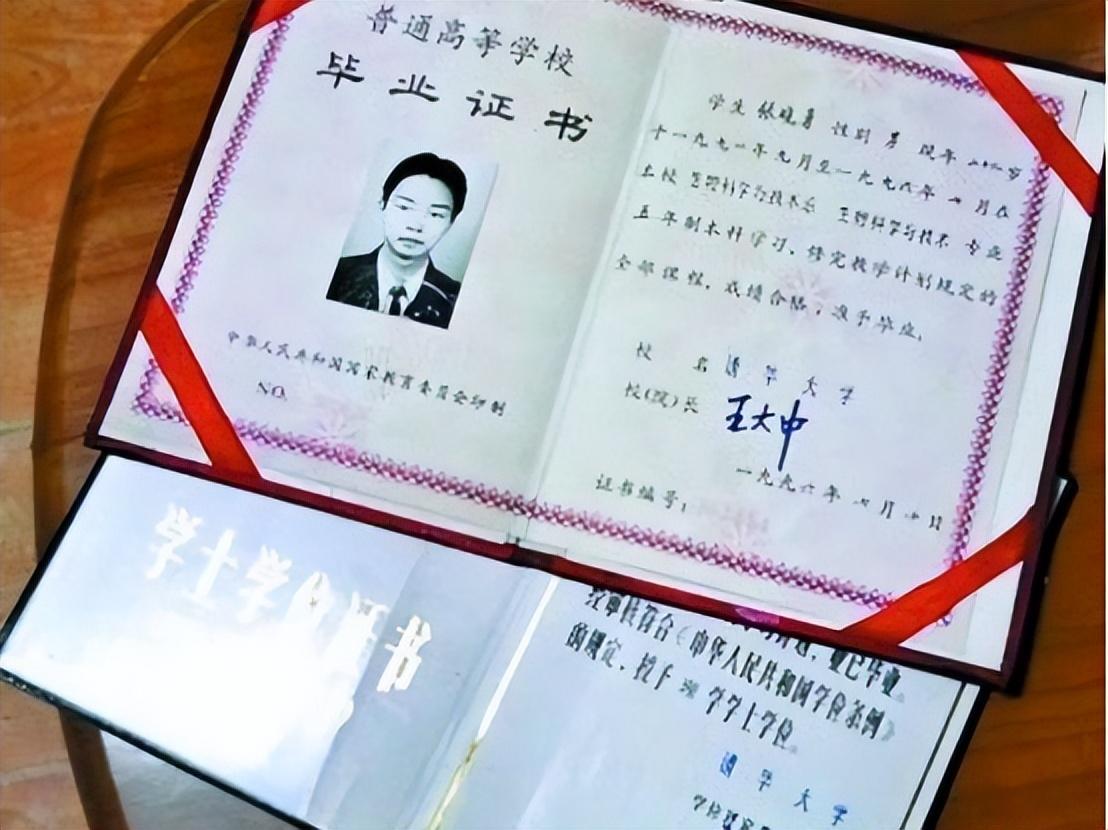 普通高等学校
毕业证书
中华人民共和国国家教育委员会印制
NO.
学生 张晓勇 性别 男 现年 岁
一九九一年九月至一九九六年 七 月在
本校 生物科学与技术系 生物科学与技术 专业
五年制本科学习,修完教学计划规定的
全部课程,成绩合格,准予毕业。
校 名 清华大学
校(院)长 王大中
一九九六年 七 月 日
证书编号:
学士学位证书
业已毕业。
经审核符合《中华人民共和国学位条例》
的规定,授予 理 学学士学位。
清华大学